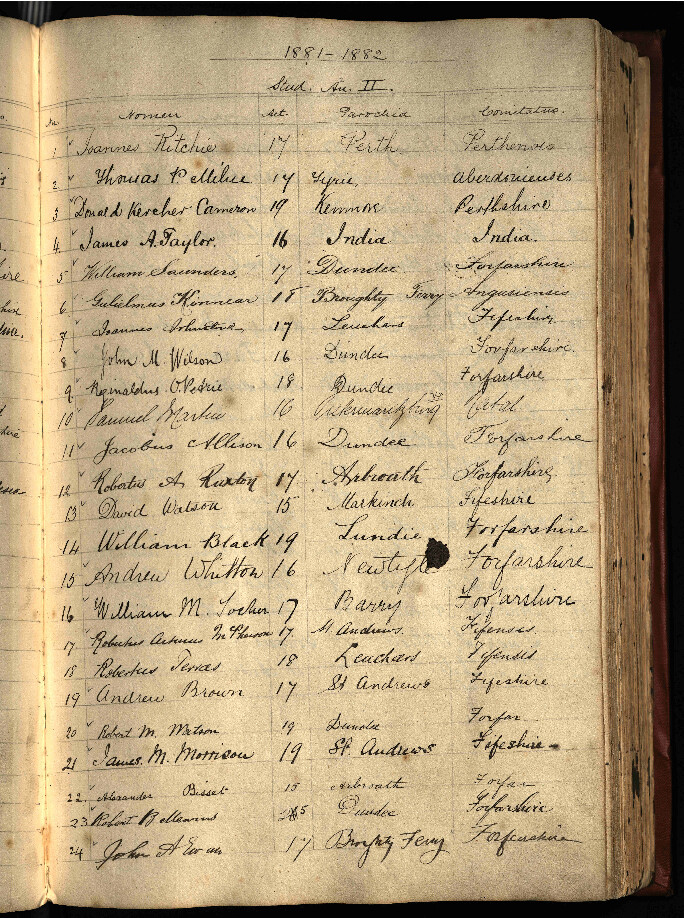 1881-1882
Stud. An. II.
No. Nomen Aet. Parochia Comitatus.
1 Joannes Ritchie 17 Perth Perthensis
2 Thomas P. Milne 17 Tyrie, Aberdonienses
3 Donald Kercher Cameron 19 Kenmore Perthshire
4 James A. Taylor. 16 India India.
5 William Saunders, 17 Dundee Forfarshire
6 Gulielmus Kinnear 18 Broughty Ferry Angusiensis
7 Joannes Johnstone 17 Leuchars Fifeshire
8 John M. Wilson 16 Dundee Forfarshire.
9 Reginaldus O. Petrie 18 Dundee Forfarshire
10 Samuel Martin 16 Natal
11 Jacobus Allison 16 Dundee Forfarshire
12 Robertus A. Ruxton 17 Arbroath Forfarshire
13 David Watson 15 Markinch Fifeshire
14 William Black 19 Lundie Forfarshire
15 Andrew Whitton 16 Newtyle Forfarshire
16 William M. 17 Barry Forfarshire
17 Robertus 17. St Andrews. Fifensis
18 Robertus Terras 18 Leuchars Fifensis
19 Andrew Brown 17 St Andrews Fifeshire
20 Robert M. Watson 19 Dundee Forfar
21 James. M. Morrison 19 St. Andrews Fifeshire
22. Alexander Bisset 15 Arbroath Forfar
23 Robert B. Dundee Forfarshire
24 John A Ewan 17 Broughty Ferry Forfarshire